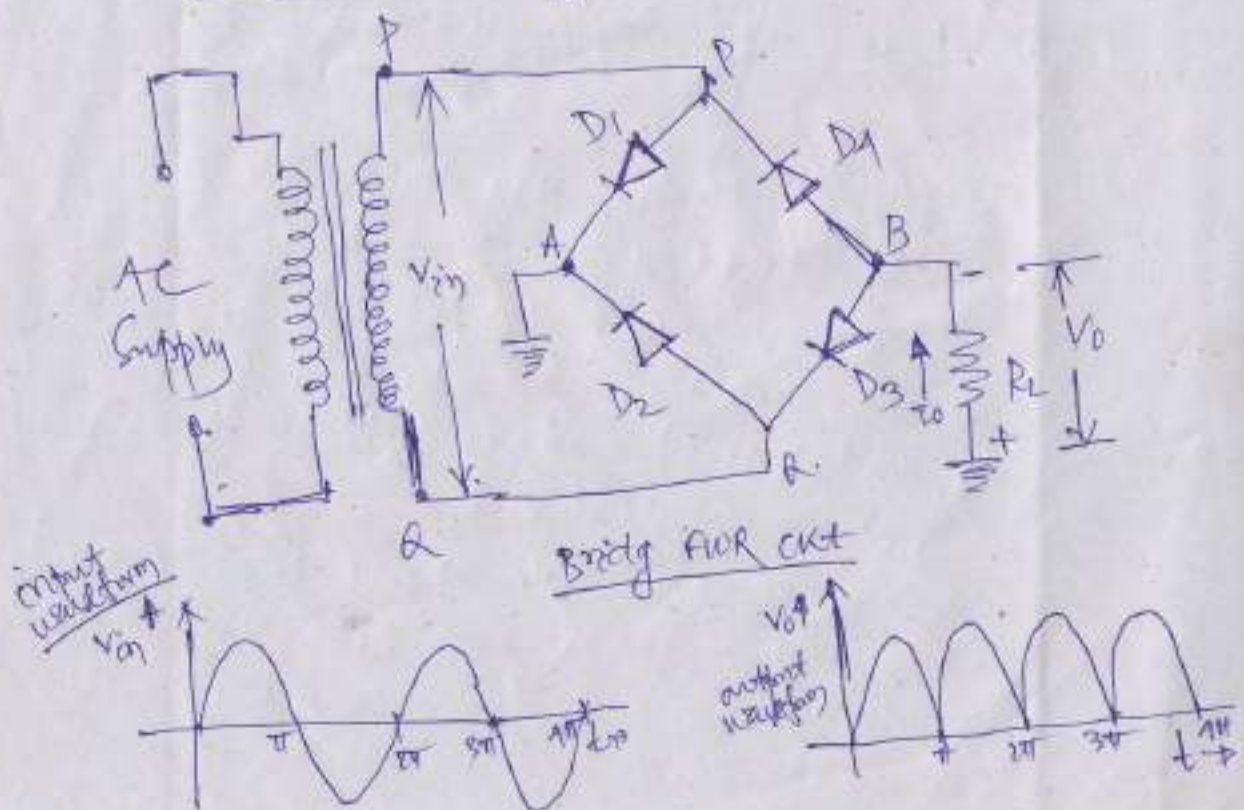 P
P
D1
D4
A
B
AC
Supply
Vin
-
V0
D2
D3
i0
RL
+
Q
Q
Bridg FWR CKt
input
waveform
Vin
π
2π
3π
4π
t→
V0
output
waveform
π
2π
3π
4π
t →